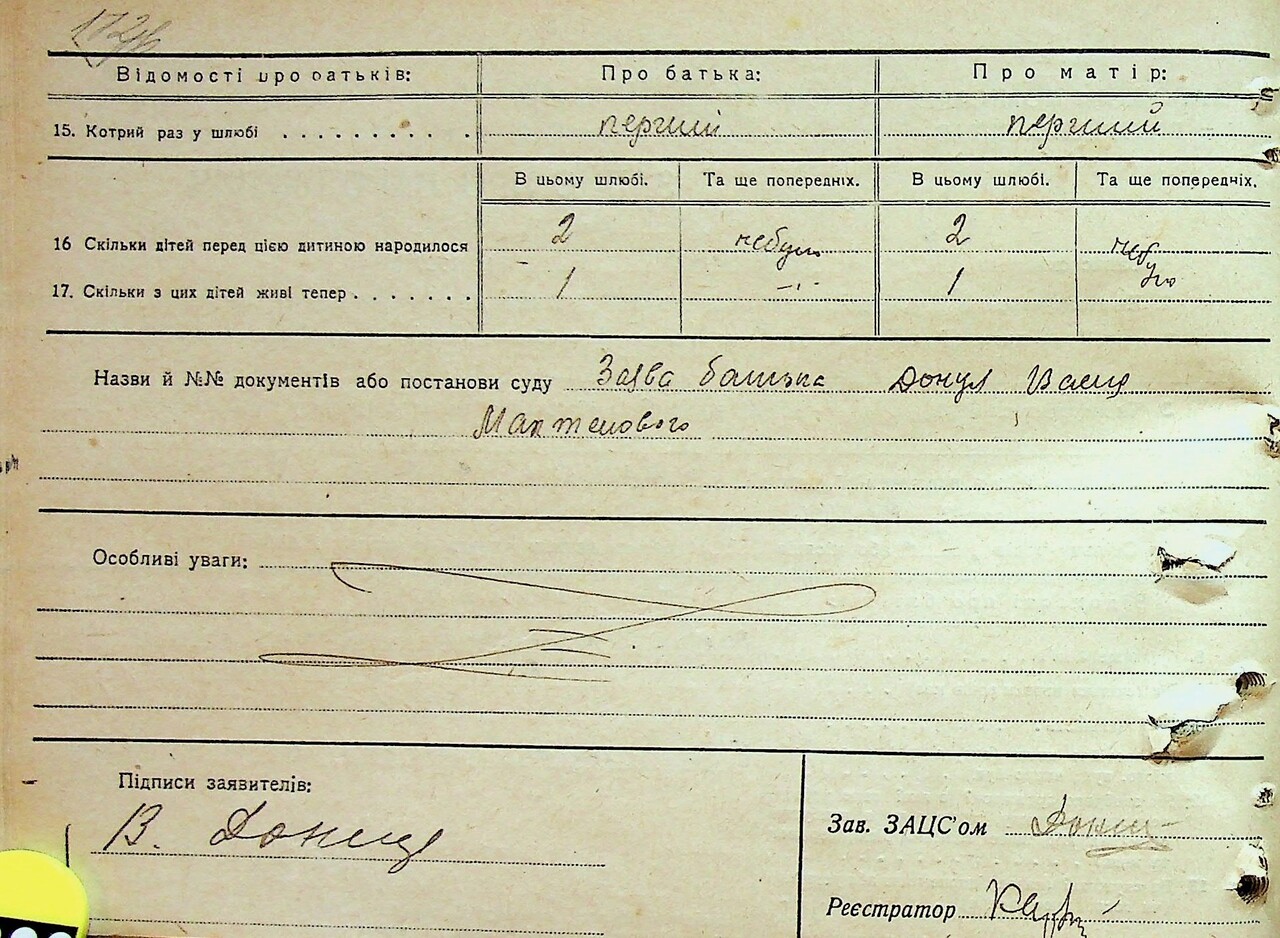 Відомості про батьків: Про батька: Про матір:
15. Котрий раз у шлюбі . . . . . . . . . . перший перший
В цьому шлюбі. Та ще попередніх. В цьому шлюбі. Та ще попередніх.
16 Скільки дітей перед цією дитиною народилося 2 небуло 2 небуло
17. Скільки з цих дітей живі тепер . . . . . . . 1 -"- 1
Назви й №№ документів або постанови суду Заява батька
Особливі уваги:
Підписи заявителів:
В.
Зав. ЗАЦС'ом
Реєстратор